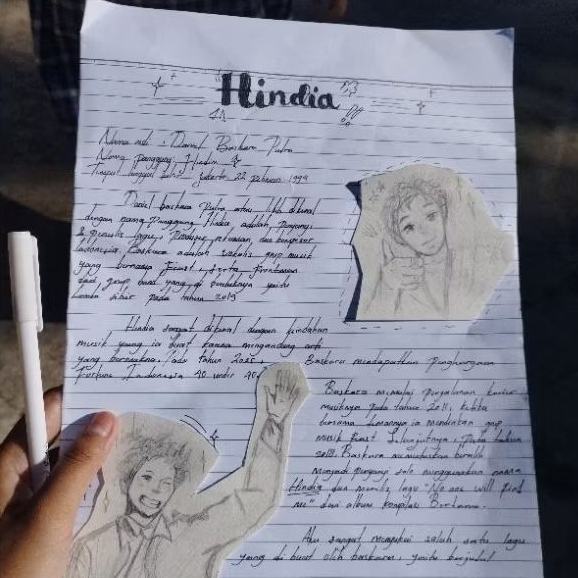 Hindia
Nama asli : Daniel Baskara Putra
Nama panggung : Hindia
Tempat tanggal lahir : Jakarta 22 Februari 1994
Daniel baskara Putra atau lebih dikenal
dengan nama Panggung Hindia, adalah Penyanyi
& penulis lagu, Produser rekaman, dan
Indonesia. Baskara adalah vokalis grup musik
yang bernama .Feast, serta
dari grup band yang yaitu
Lomba Sihir pada tahun 2019
Hindia sangat dikenal dengan
musik yang ia buat karena mengandung arti
yang bermakna. Pada tahun Baskara mendapatkan Penghargaan
Fortune Indonesia 40 under 40.
Baskara memulai perjalanan karier
musiknya pada tahun 2011, ketika
bersama temannya ia mendirikan grup
musik .Feast Selanjutnya, pada tahun
2018, Baskara memutuskan
menjadi penyanyi solo menggunakan nama
Hindia dan merilis lagu "No one will find
me" dan album kompilasi Bertamu.
Aku sangat menyukai salah satu lagu
yang di buat oleh baskara, yaitu berjudul